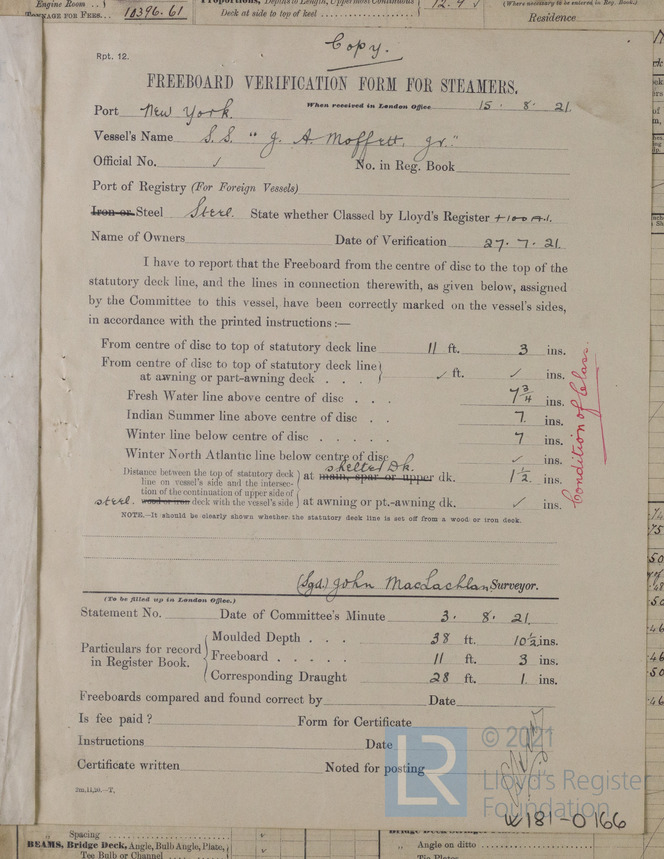 Engine Room
TONNAGE FOR FEES... 10396.61
Proportions, Depths to Length, Uppermost Continuous
Deck at side to top of keel
(Where necessary to be entered in Reg. Book.)
Residence
Copy.
Rpt. 12.
FREEBOARD VERIFICATION FORM FOR STEAMERS.
Port New York. When received in London Office 15. 8. 21.
Vessel's Name S.S. "J. A. Moffett, Jr."
Official No. ✓ No. in Reg. Book
Port of Registry (For Foreign Vessels)
Iron or Steel Steel. State whether Classed by Lloyd's Register +100A1.
Name of Owners Date of Verification 27. 7. 21.
I have to report that the Freeboard from the centre of disc to the top of the
statutory deck line, and the lines in connection therewith, as given below, assigned
by the Committee to this vessel, have been correctly marked on the vessel's sides,
in accordance with the printed instructions:—
From centre of disc to top of statutory deck line 11 ft. 3 ins.
From centre of disc to top of statutory deck line
at awning or part-awning deck . . . ✓ ft. ✓ ins.
Fresh Water line above centre of disc . . 7 3/4 ins.
Indian Summer line above centre of disc . . 7. ins.
Winter line below centre of disc . . . . . 7 ins.
Winter North Atlantic line below centre of disc ✓ ins.
shelter Dk.
Distance between the top of statutory deck
line on vessel's side and the intersec-
tion of the continuation of upper side of
steel. wood or iron deck with the vessel's side
at main, spar or upper dk. 1 1/2 ins.
at awning or pt.-awning dk. ✓ ins.
Condition of Class.
NOTE.—It should be clearly shown whether the statutory deck line is set off from a wood or iron deck.
(Sgd.) John MacLachlan Surveyor.
(To be filled up in London Office.)
Statement No. Date of Committee's Minute 3. 8. 21.
Particulars for record
in Register Book.
Moulded Depth . . . 38 ft. 10 1/2 ins.
Freeboard . . . . . 11 ft. 3 ins.
Corresponding Draught 28 ft. 1. ins.
Freeboards compared and found correct by Date
Is fee paid? Form for Certificate
Instructions Date
Certificate written Noted for posting
2m,11,20.—T.
LR
© 2021
Lloyd's Register
Foundation
W181-0166
Spacing
BEAMS, Bridge Deck, Angle, Bulb Angle, Plate,
Tee Bulb or Channel
Angle on ditto